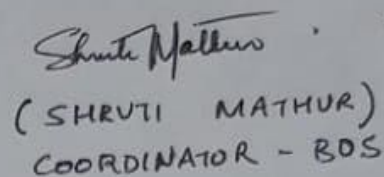 Shruti Mathur
(SHRUTI MATHUR)
COORDINATOR - BOS